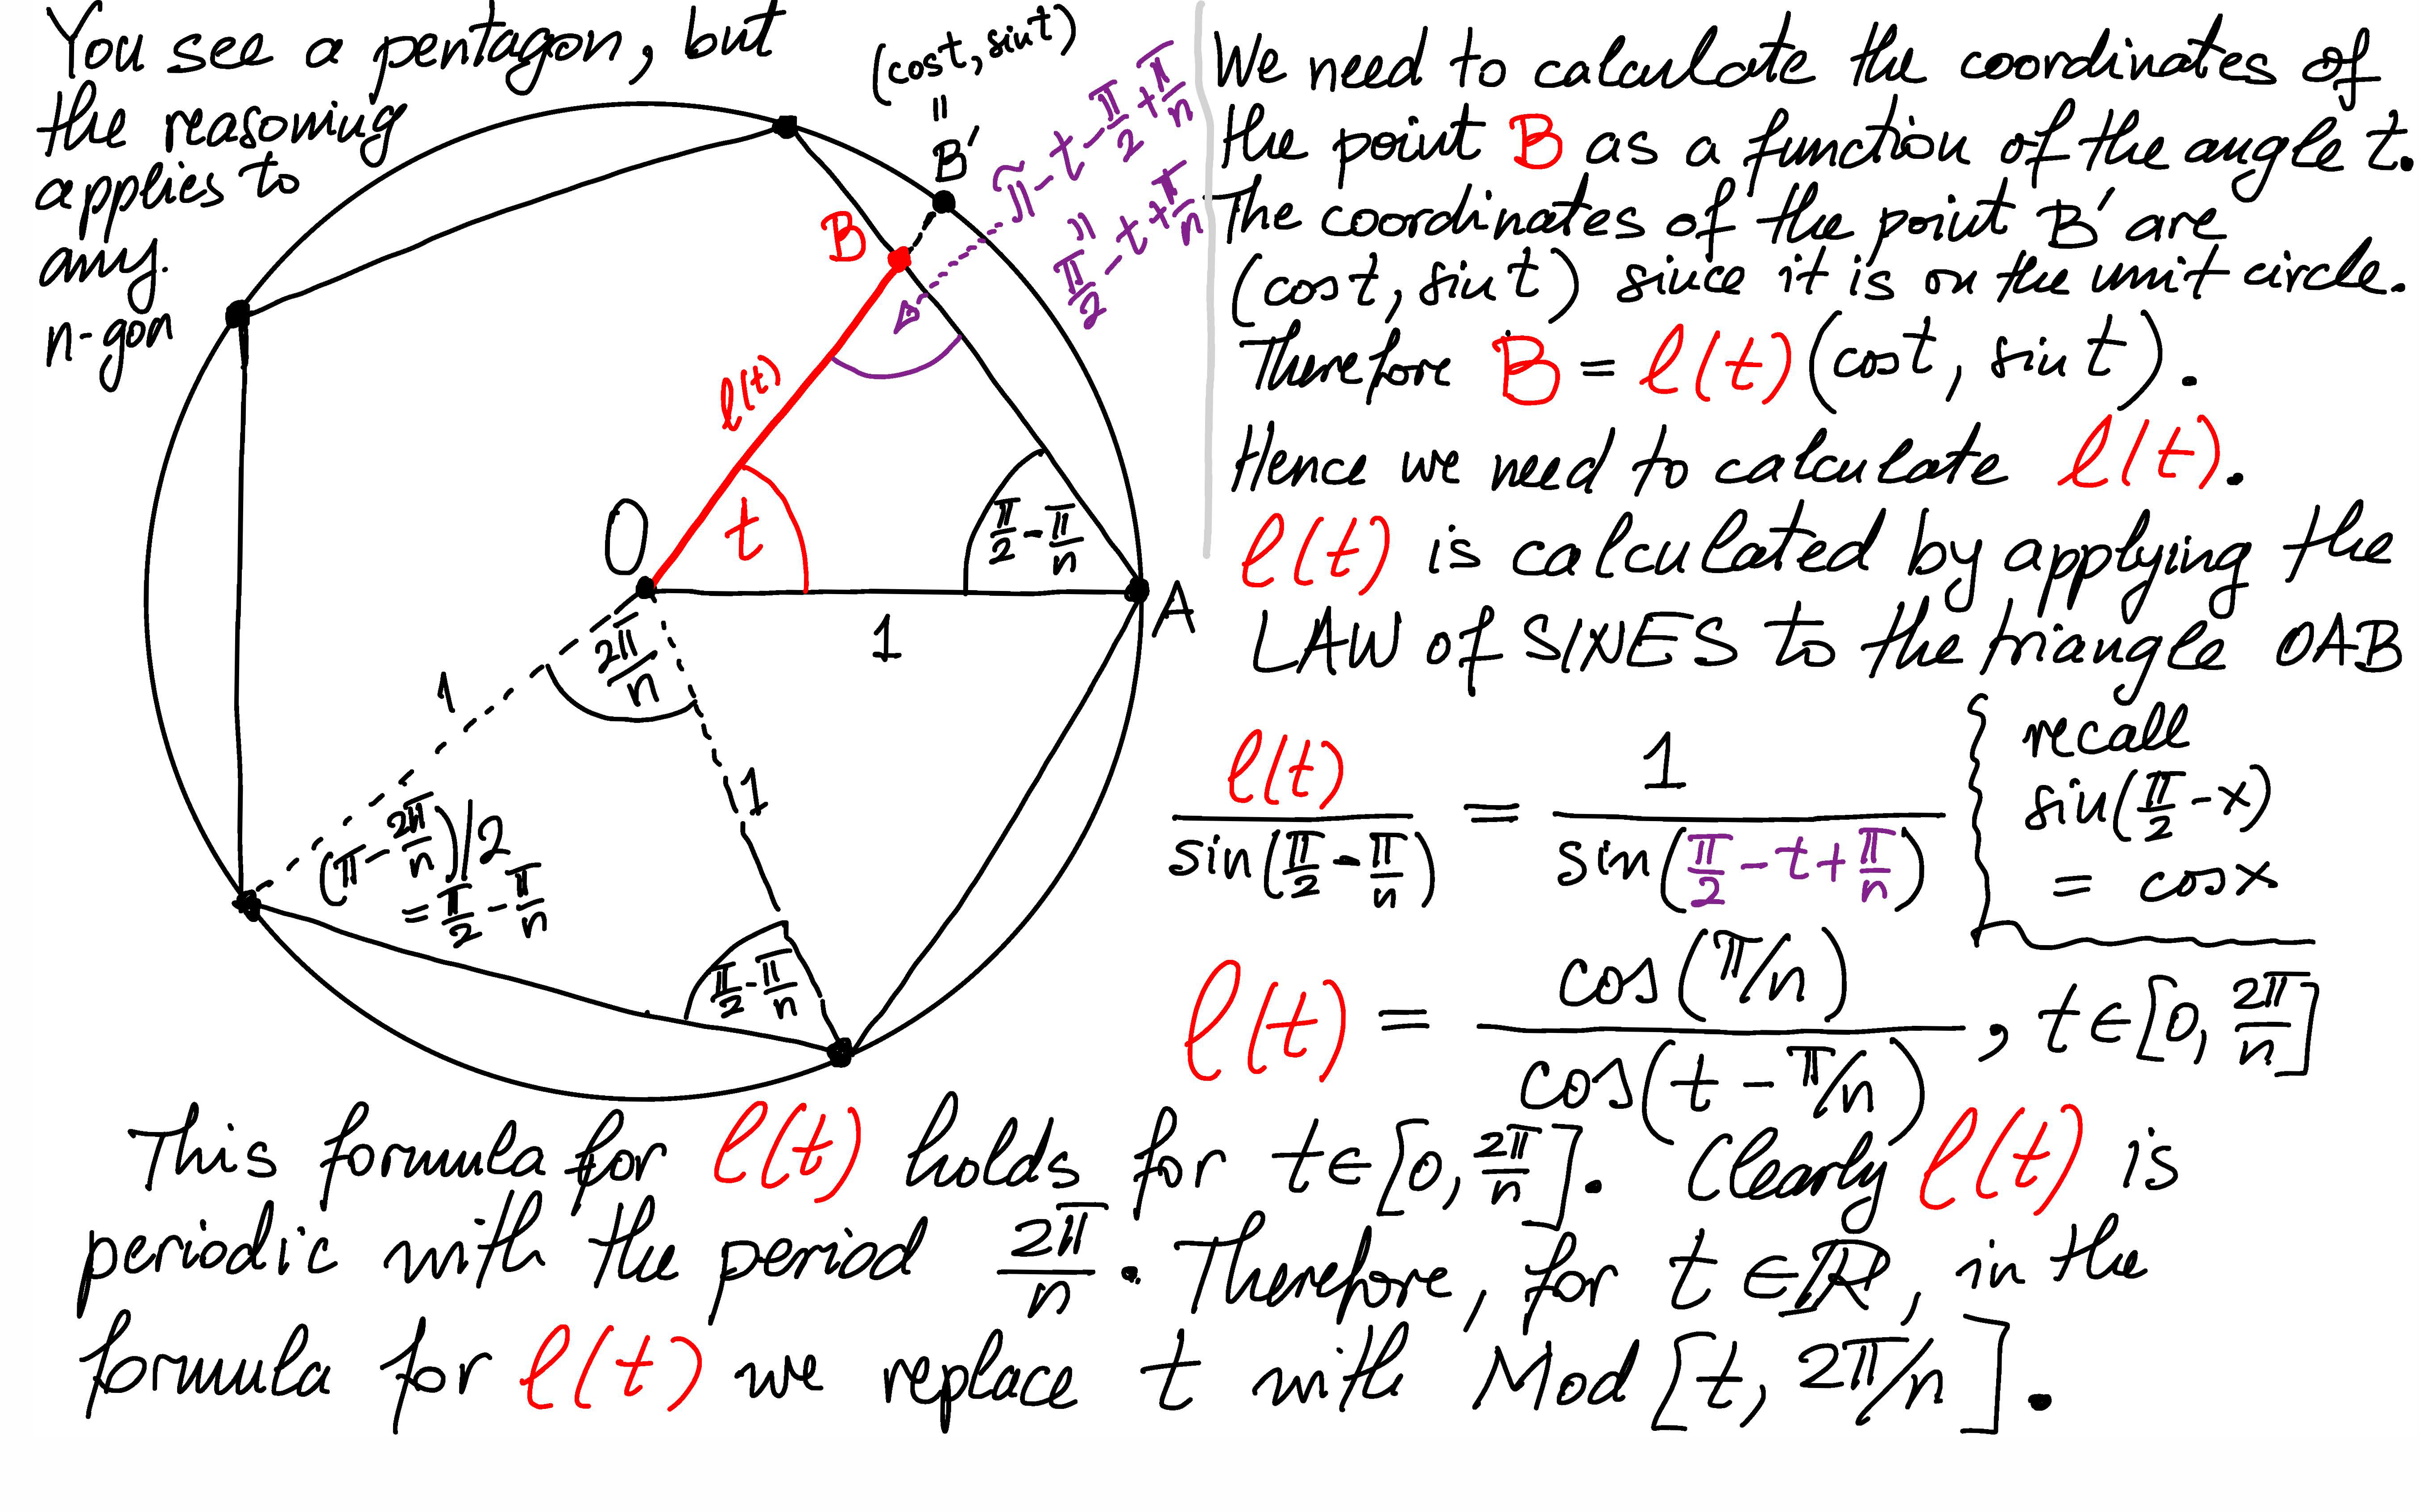 You see a pentagon, but
the reasoning
applies to
any
n-gon
(cost, sint)
=
B'
π - t - π/2 + π/n
=
π/2 - t + π/n
B
l(t)
t
O
π/2 - π/n
A
1
2π/n
1
1
(π - 2π/n)/2
= π/2 - π/n
π/2 - π/n
We need to calculate the coordinates of
the point B as a function of the angle t.
The coordinates of the point B' are
(cost, sint) since it is on the unit circle.
Therefore B = l(t)(cost, sint).
Hence we need to calculate l(t).
l(t) is calculated by applying the
LAW of SINES to the triangle OAB
l(t)/sin(π/2 - π/n) = 1/sin(π/2 - t + π/n)
recall
sin(π/2 - x)
= cosx
l(t) = cos(π/n)/cos(t - π/n), t∈[0, 2π/n]
This formula for l(t) holds for t∈[0, 2π/n]. Clearly l(t) is
periodic with the period 2π/n. Therefore, for t∈ℝ, in the
formula for l(t) we replace t with Mod[t, 2π/n].